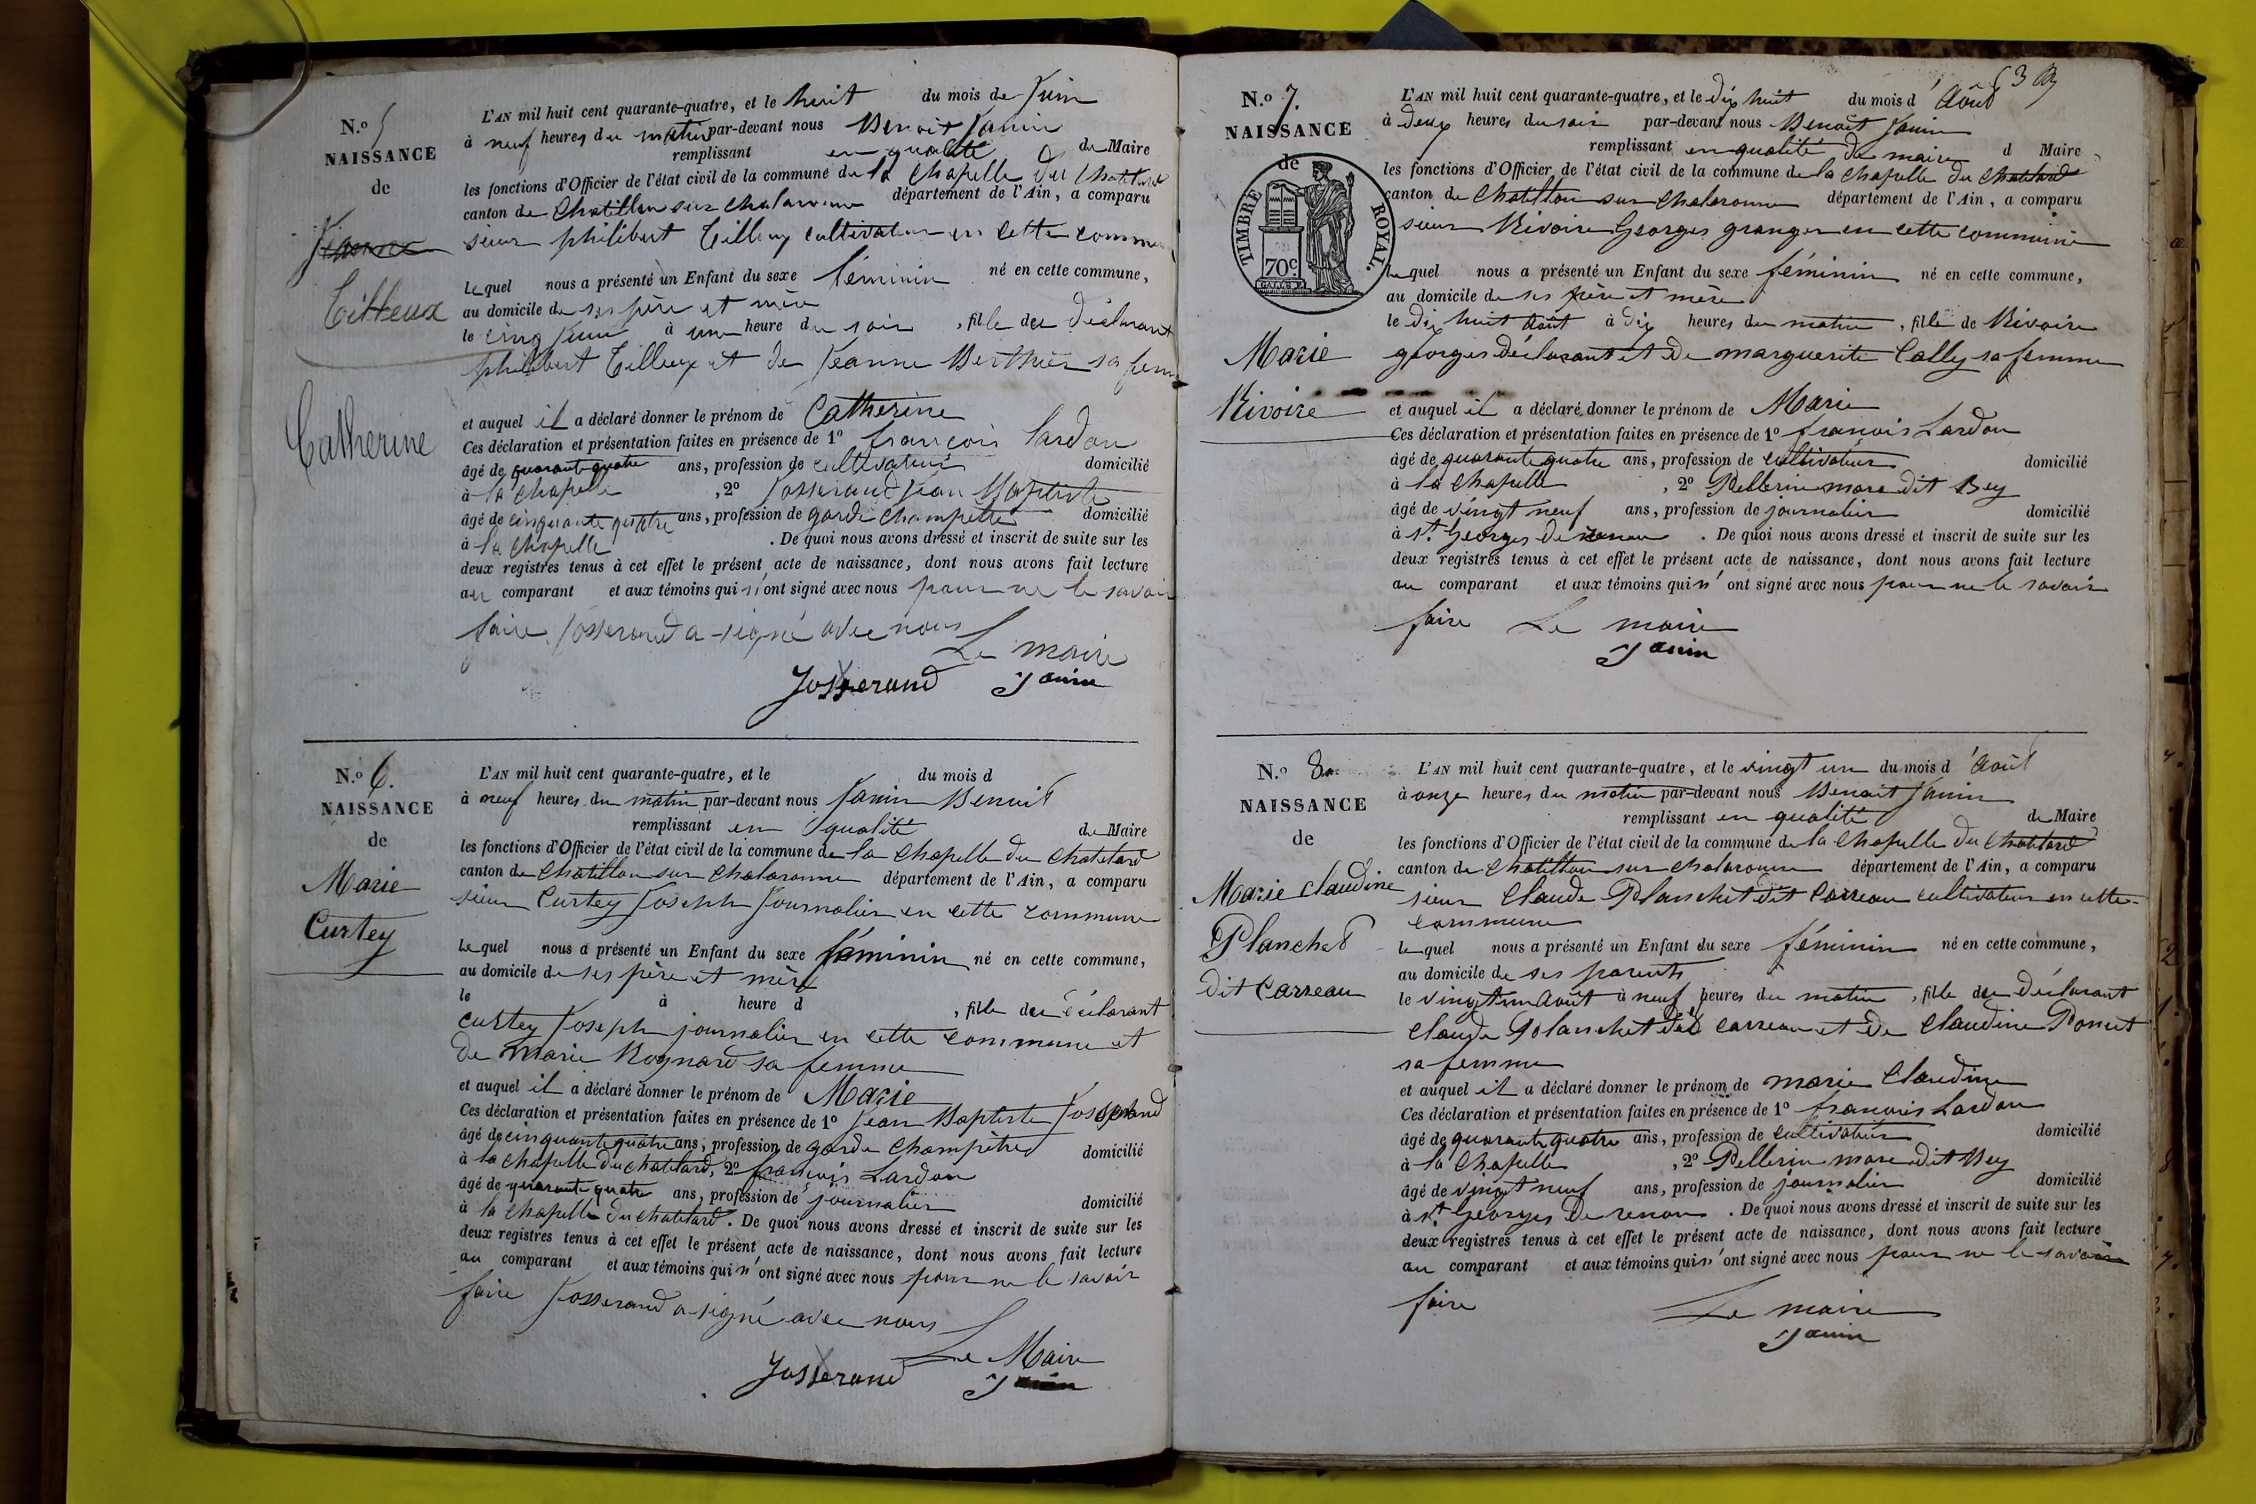 N.o 5
NAISSANCE
de
Jeanne
Tilleux
Catherine
L'AN mil huit cent quarante-quatre, et le huit du mois de Juin
à neuf heures du matin par-devant nous Benoit Janin
remplissant en qualité de Maire
les fonctions d'Officier de l'état civil de la commune de la Chapelle du Chatelard
canton de Chatillon sur Chalaronne département de l'Ain, a comparu
sieur philibert Tilleux cultivateur en cette commune
lequel nous a présenté un Enfant du sexe féminin né en cette commune,
au domicile de ses père et mère
le cinq Juin à une heure du soir, fille du déclarant
philibert Tilleux et de Jeanne Berthier sa femme
et auquel il a déclaré donner le prénom de Catherine
Ces déclaration et présentation faites en présence de 1o françois Lardon
âgé de quarante quatre ans, profession de cultivateur domicilié
à la Chapelle, 2o Josserand Jean Baptiste
âgé de cinquante quatre ans, profession de garde champetre domicilié
à la Chapelle. De quoi nous avons dressé et inscrit de suite sur les
deux registres tenus à cet effet le présent acte de naissance, dont nous avons fait lecture
au comparant et aux témoins qui n'ont signé avec nous pour ne le savoir
faire Josserand a signé avec nous
Le maire
Josserand Janin
N.o 6.
NAISSANCE
de
Marie
Curtey
L'AN mil huit cent quarante-quatre, et le du mois d
à neuf heures du matin par-devant nous Janin Benoit
remplissant en qualité de Maire
les fonctions d'Officier de l'état civil de la commune de la Chapelle du Chatelard
canton de Chatillon sur Chalaronne département de l'Ain, a comparu
sieur Curtey Joseph Journalier en cette commune
lequel nous a présenté un Enfant du sexe féminin né en cette commune,
au domicile de ses père et mère
le à heure d, fille du déclarant
curtey Joseph journalier en cette commune et
de marie Rognard sa femme
et auquel il a déclaré donner le prénom de Marie
Ces déclaration et présentation faites en présence de 1o Jean Baptiste Josserand
âgé de cinquante quatre ans, profession de garde Champêtre domicilié
à la chapelle du chatelard, 2o françois Lardon
âgé de quarante quatre ans, profession de journalier domicilié
à la chapelle du chatelard. De quoi nous avons dressé et inscrit de suite sur les
deux registres tenus à cet effet le présent acte de naissance, dont nous avons fait lecture
au comparant et aux témoins qui n'ont signé avec nous pour ne le savoir
faire Josserand a signé avec nous
Le Maire
Josserand Janin
53
N.o 7.
NAISSANCE
de
TIMBRE ROYAL.
70c
Marie
Rivoire
L'AN mil huit cent quarante-quatre, et le dix huit du mois d'Août
à deux heures du soir par-devant nous Benoit Janin
remplissant en qualité de maire d Maire
les fonctions d'Officier de l'état civil de la commune de la Chapelle du Chatelard
canton de Chatillon sur Chalaronne département de l'Ain, a comparu
sieur Rivoire Georges granger en cette commune
lequel nous a présenté un Enfant du sexe féminin né en cette commune,
au domicile de ses père et mère
le dix huit Août à dix heures du matin, fille de Rivoire
georges déclarant et de marguerite Cally sa femme
et auquel il a déclaré donner le prénom de Marie
Ces déclaration et présentation faites en présence de 1o francois Lardon
âgé de quarante quatre ans, profession de cultivateur domicilié
à la Chapelle, 2o Pellerin marc dit Bey
âgé de vingt neuf ans, profession de journalier domicilié
à St. Georges de renon. De quoi nous avons dressé et inscrit de suite sur les
deux registres tenus à cet effet le présent acte de naissance, dont nous avons fait lecture
au comparant et aux témoins qui n'ont signé avec nous pour ne le savoir
faire Le maire
Janin
N.o 8
NAISSANCE
de
Marie claudine
Planchet
dit Carreau
L'AN mil huit cent quarante-quatre, et le vingt un du mois d'Août
à onze heures du matin par-devant nous Benoit Janin
remplissant en qualité de Maire
les fonctions d'Officier de l'état civil de la commune de la Chapelle du Chatelard
canton de Chatillon sur Chalaronne département de l'Ain, a comparu
sieur Claude Planchet dit Carreau cultivateur en cette
commune
lequel nous a présenté un Enfant du sexe féminin né en cette commune,
au domicile de ses parents
le vingt un Août à neuf heures du matin, fille du déclarant
Claude Planchet dit Carreau et de Claudine Poncet
sa femme
et auquel il a déclaré donner le prénom de marie Claudine
Ces déclaration et présentation faites en présence de 1o francois Lardon
âgé de quarante quatre ans, profession de cultivateur domicilié
à la Chapelle, 2o Pellerin marc dit Bey
âgé de vingt neuf ans, profession de journalier domicilié
à St. Georges de renon. De quoi nous avons dressé et inscrit de suite sur les
deux registres tenus à cet effet le présent acte de naissance, dont nous avons fait lecture
au comparant et aux témoins qui n'ont signé avec nous pour ne le savoir
faire Le maire
Janin